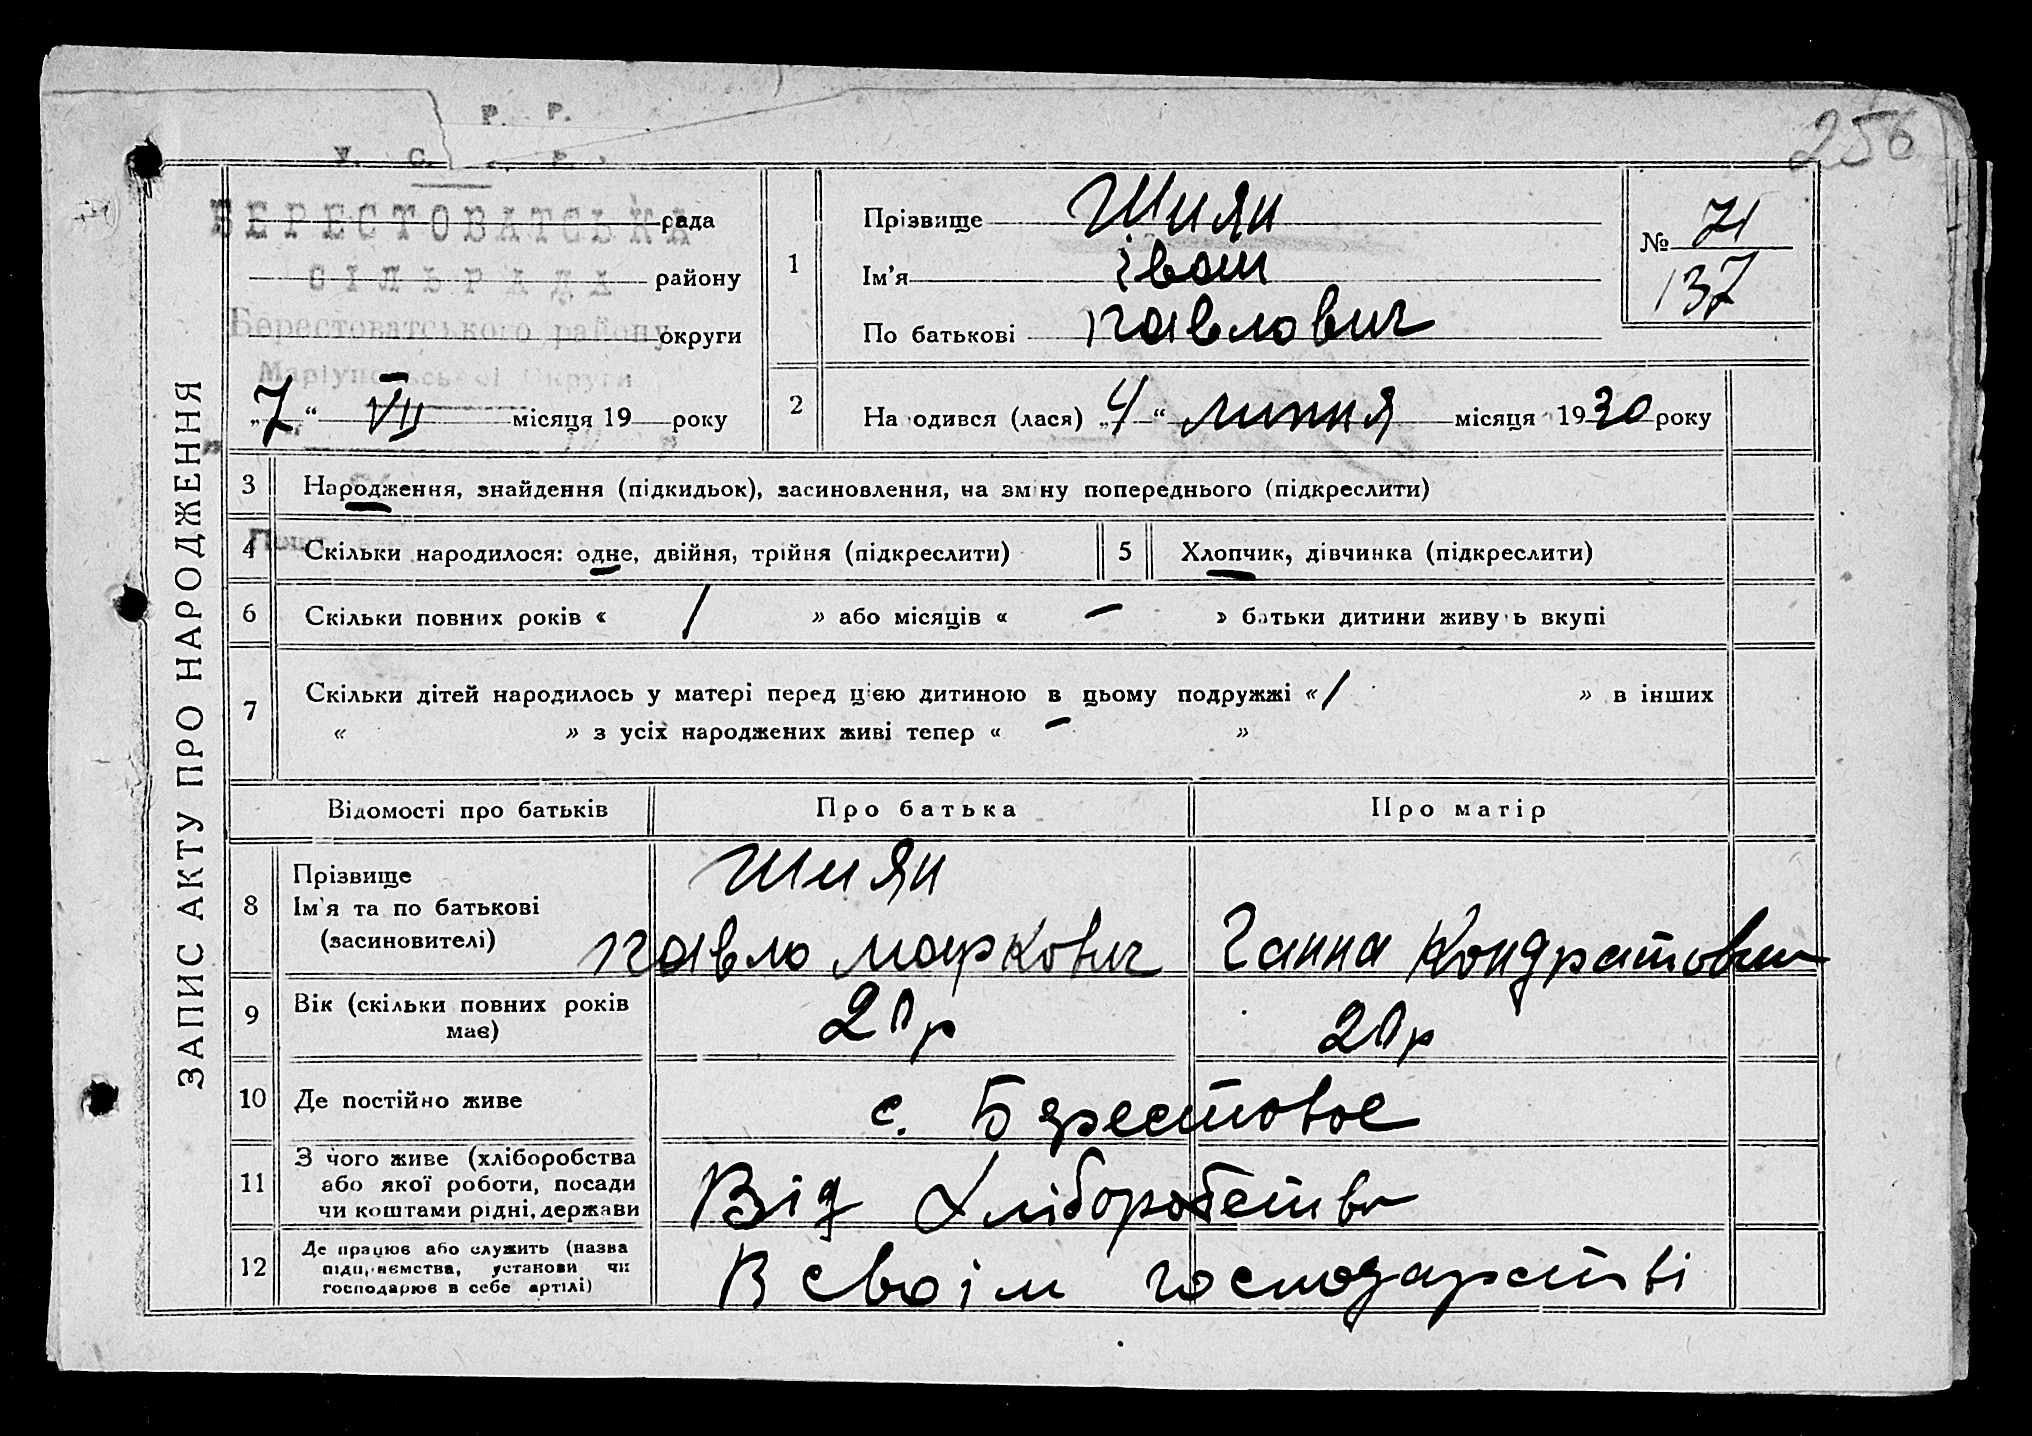 256
Р. Р.
У. С. Р.
БЕРЕСТОВАТСЬКА рада
СІЛЬРАДА району
Берестоватського району округи
Маріупольської Округи
„7“ VII місяця 19 року
1
Прізвище Шиян
Ім'я іван
По батькові павлович
№ 71
137
2
На одився (лася) „4“ липня місяця 1930 року
ЗАПИС АКТУ ПРО НАРОДЖЕННЯ
3 Народження, знайдення (підкидьок), засиновлення, на зміну попереднього (підкреслити)
4 Скільки народилося: одне, двійня, трійня (підкреслити)
5 Хлопчик, дівчинка (підкреслити)
6 Скільки повних років « / » або місяців « — » батьки дитини живуть вкупі
7 Скільки дітей народилось у матері перед цією дитиною в цьому подружжі « / » в інших
« » з усіх народжених живі тепер « — »
Відомості про батьків Про батька Про матір
8 Прізвище
Ім'я та по батькові
(засиновителі)
Шиян
павло маркович Ганна Кондратович
9 Вік (скільки повних років
має)
20р 20р
10 Де постійно живе с. Берестовое
11 З чого живе (хліборобства
або якої роботи, посади
чи коштами рідні, держави
Від Хліборобства
12 Де працює або служить (назва
підприємства, установи чи
господарює в себе артілі)
В своїм господарстві